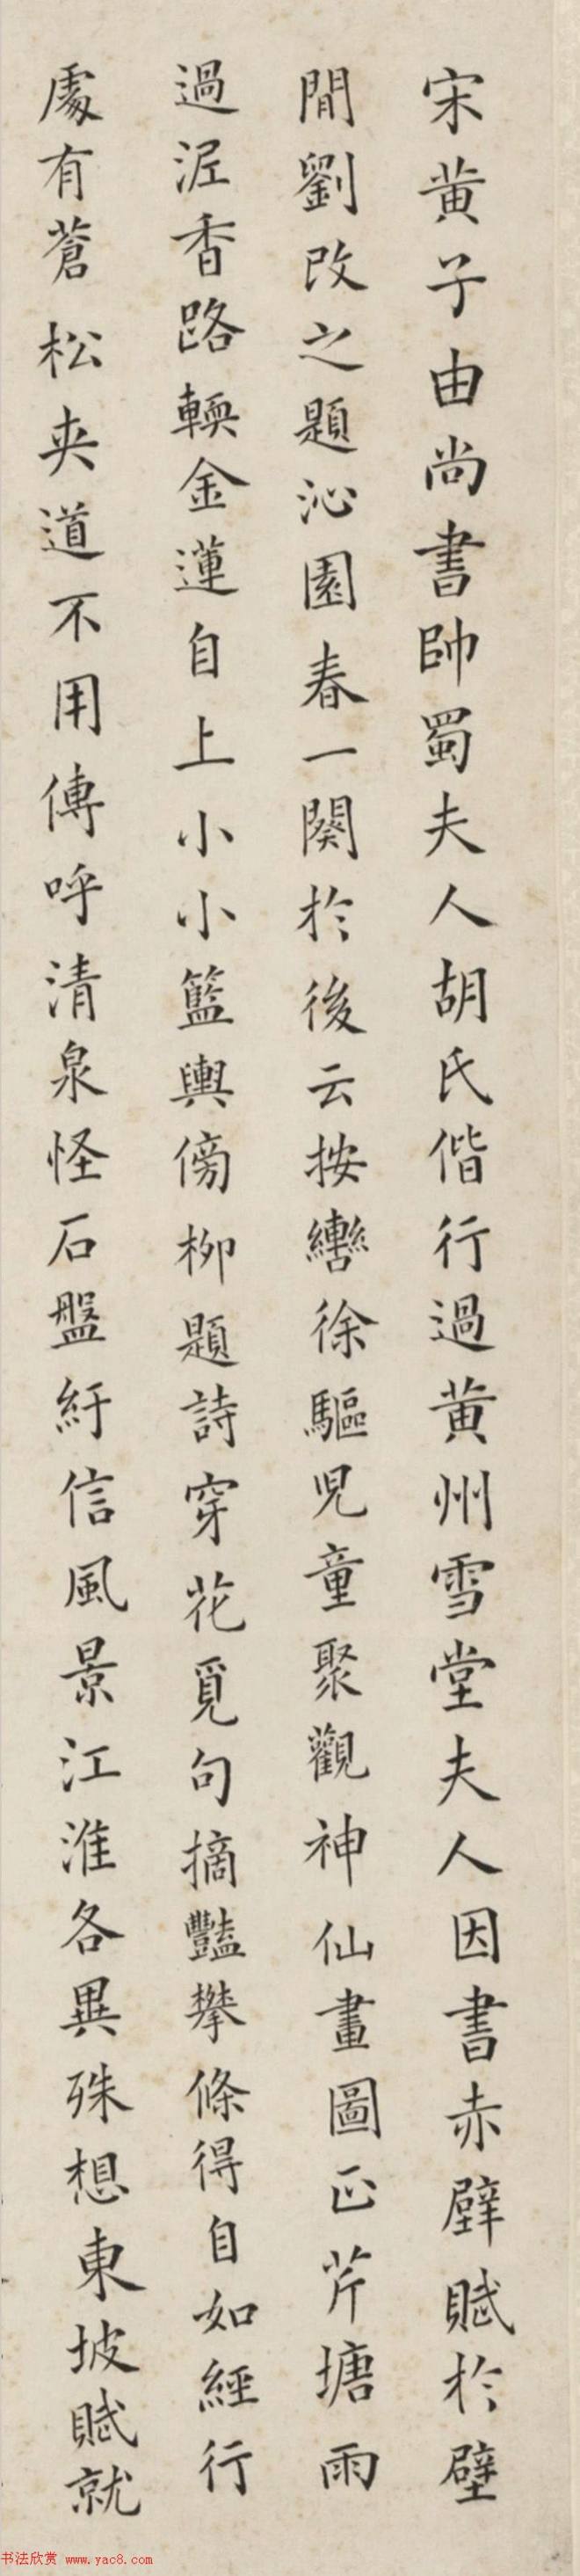 宋黄子由尚書帥蜀夫人胡氏偕行過黄州雪堂夫人因書赤壁賦於壁
間劉改之題沁園春一闋於後云按轡徐驅児童聚觀神仙畫圖正芹塘雨
過泥香路輭金蓮自上小小籃輿傍柳題詩穿花覓句摘豔攀條得自如經行
處有蒼松夾道不用傳呼清泉怪石盤紆信風景江淮各異殊想東坡賦就
书法欣赏 www.yac8.com